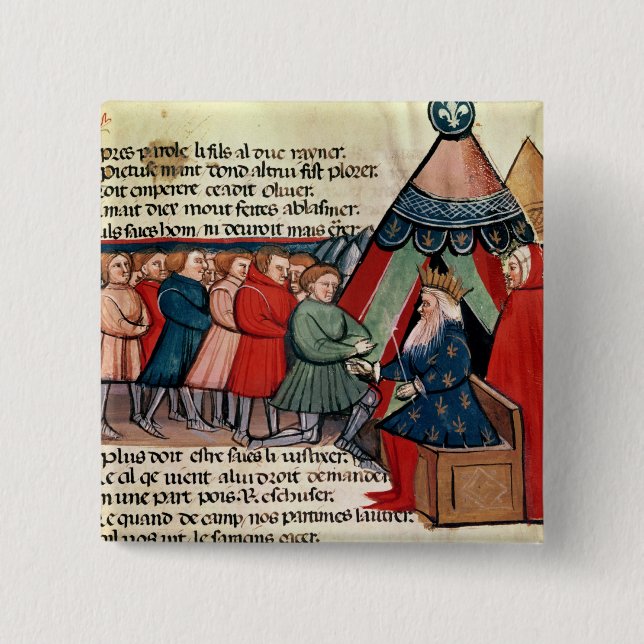 pres parole li fils al duc rayner.
Pietuse mant dond altrui fist plorer.
roit emperere ceadit oliuer.
mait diex mout feites ablasmer.
uls saies hom, ni deuroit mais
plus doit estre saies li iustixer.
le cil qe uient alui droit demander
n une part pois eschuser.
le quand de camp, nos partimes lautrer.
uos uit. le